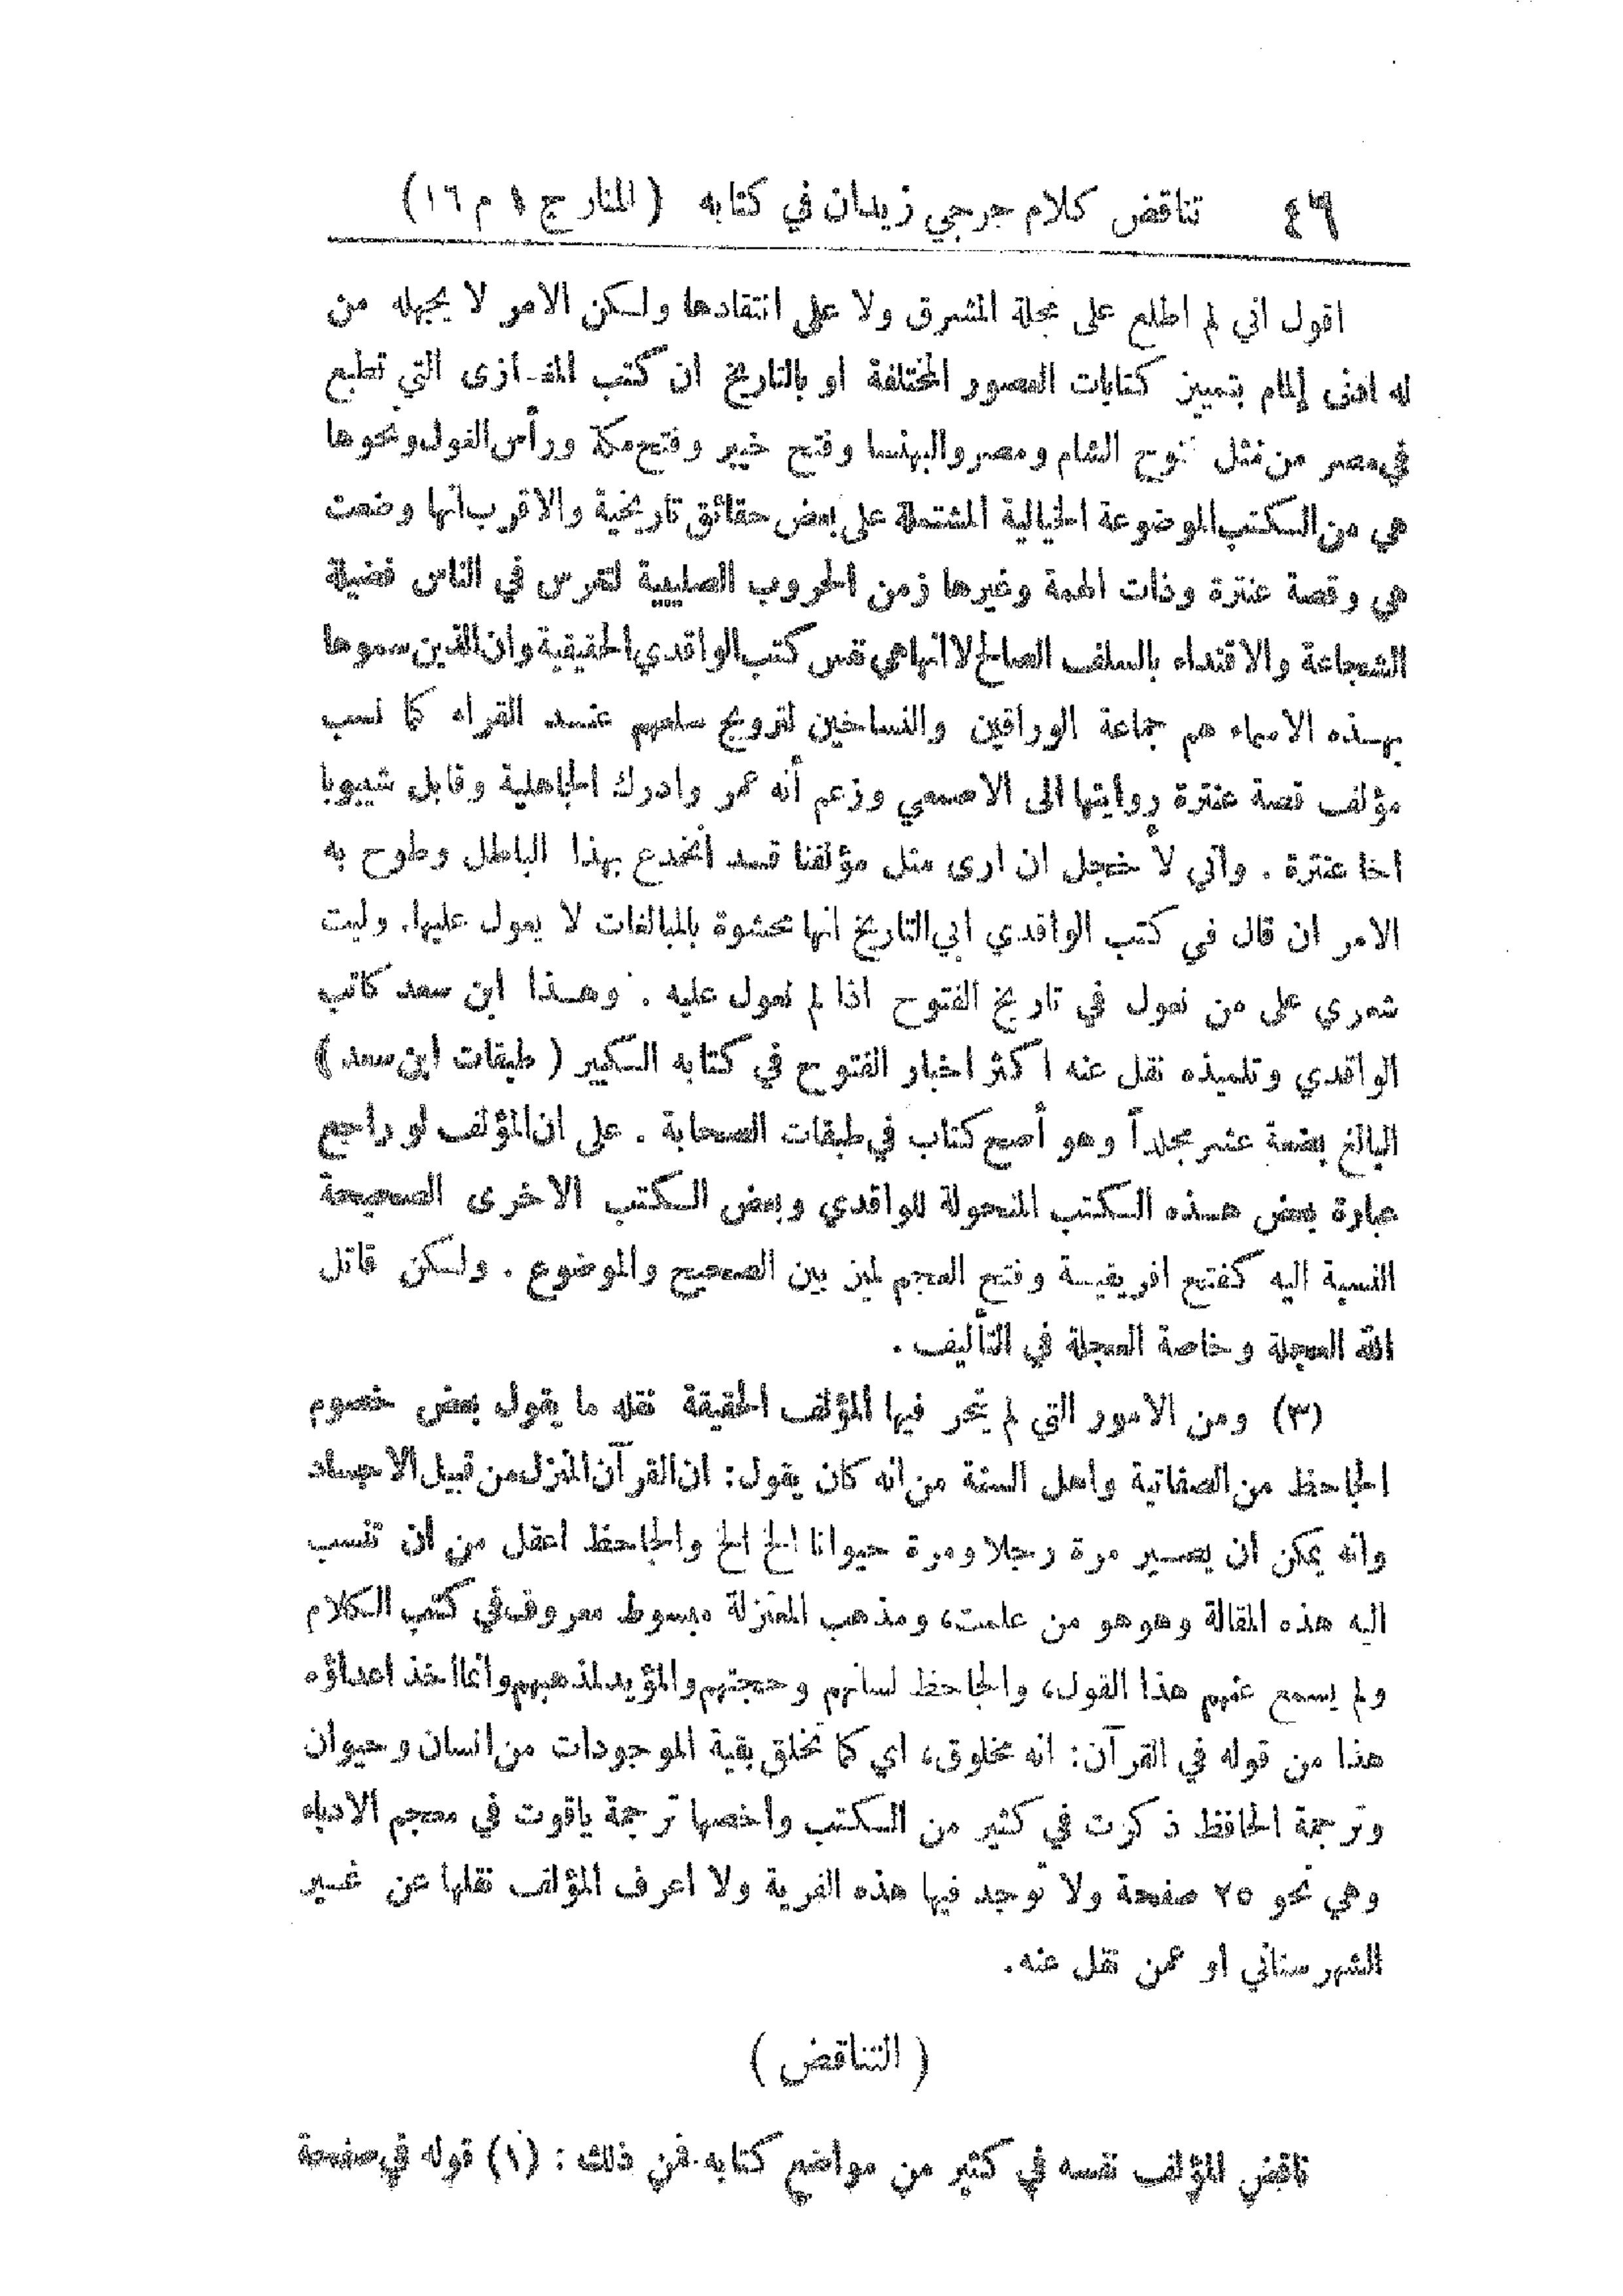 ٤٦ تناقض كلام جرجي زيدان في كتابه (المنار ج ١ م ١٦)
اقول اني لم اطلع على مجلة المشرق ولا على انتقادها ولكن الامر لا يجهله من
له ادنى إلمام بتمييز كتابات العصور المختلفة او بالتاريخ ان كتب المغازى التي تطبع
في مصر من مثل فتوح الشام ومصر والبهنسا وفتح خيبر وفتح مكة ورأس الغول ونحوها
هي من الكتب الموضوعة الخيالية المشتملة على بعض حقائق تاريخية والاقرب انها وضعت
هي وقصة عنترة وذات الهمة وغيرها زمن الحروب الصليبية لتغرس في الناس فضيلة
الشجاعة والاقتداء بالسلف الصالح لا انها هي نفس كتب الواقدي الحقيقية وان الذين سموها
بهذه الاسماء هم جماعة الوراقين والنساخين لترويج سلعهم عند القراء كما نسب
مؤلف قصة عنترة روايتها الى الاصمعي وزعم أنه عمر وادرك الجاهلية وقابل شيبوبا
اخا عنترة . واني لأ خجل ان ارى مثل مؤلفنا قد انخدع بهذا الباطل وطوح به
الامر ان قال في كتب الواقدي ابي التاريخ انها محشوة بالمبالغات لا يعول عليها. وليت
شعري على من نعول في تاريخ الفتوح اذا لم نعول عليه . وهذا ابن سعد كاتب
الواقدي وتلميذه نقل عنه اكثر اخبار الفتوح في كتابه الكبير ( طبقات ابن سعد )
البالغ بضعة عشر مجلداً وهو أصح كتاب في طبقات الصحابة . على ان المؤلف لو راجع
عبارة بعض هذه الكتب المنحولة للواقدي وبعض الكتب الاخرى الصحيحة
النسبة اليه كفتح افريقية وفتح العجم لميز بين الصحيح والموضوع . ولكن قاتل
الله العجلة وخاصة العجلة في التأليف .
(٣) ومن الامور التي لم يتحر فيها المؤلف الحقيقة نقله ما يقول بعض خصوم
الجاحظ من الصفاتية واهل السنة من انه كان يقول: ان القرآن المنزل من قبيل الاجساد
وانه يمكن ان يصير مرة رجلا ومرة حيوانا الخ الخ والجاحظ اعقل من ان تنسب
اليه هذه المقالة وهو هو من علمت، ومذهب المعتزلة مبسوط معروف في كتب الكلام
ولم يسمع عنهم هذا القول، والجاحظ لسانهم وحجتهم والمؤيد لمذهبهم وانما اخذ اعداؤه
هذا من قوله في القرآن: انه مخلوق، اي كما تخلق بقية الموجودات من انسان وحيوان
وترجمة الحافظ ذكرت في كثير من الكتب واخصها ترجمة ياقوت في معجم الادباء
وهي نحو ٢٥ صفحة ولا توجد فيها هذه الفرية ولا اعرف المؤلف نقلها عن غير
الشهرستاني او عمن نقل عنه.
( التناقض )
ناقض المؤلف نفسه في كثير من مواضع كتابه. فمن ذلك : (١) قوله في صفحة